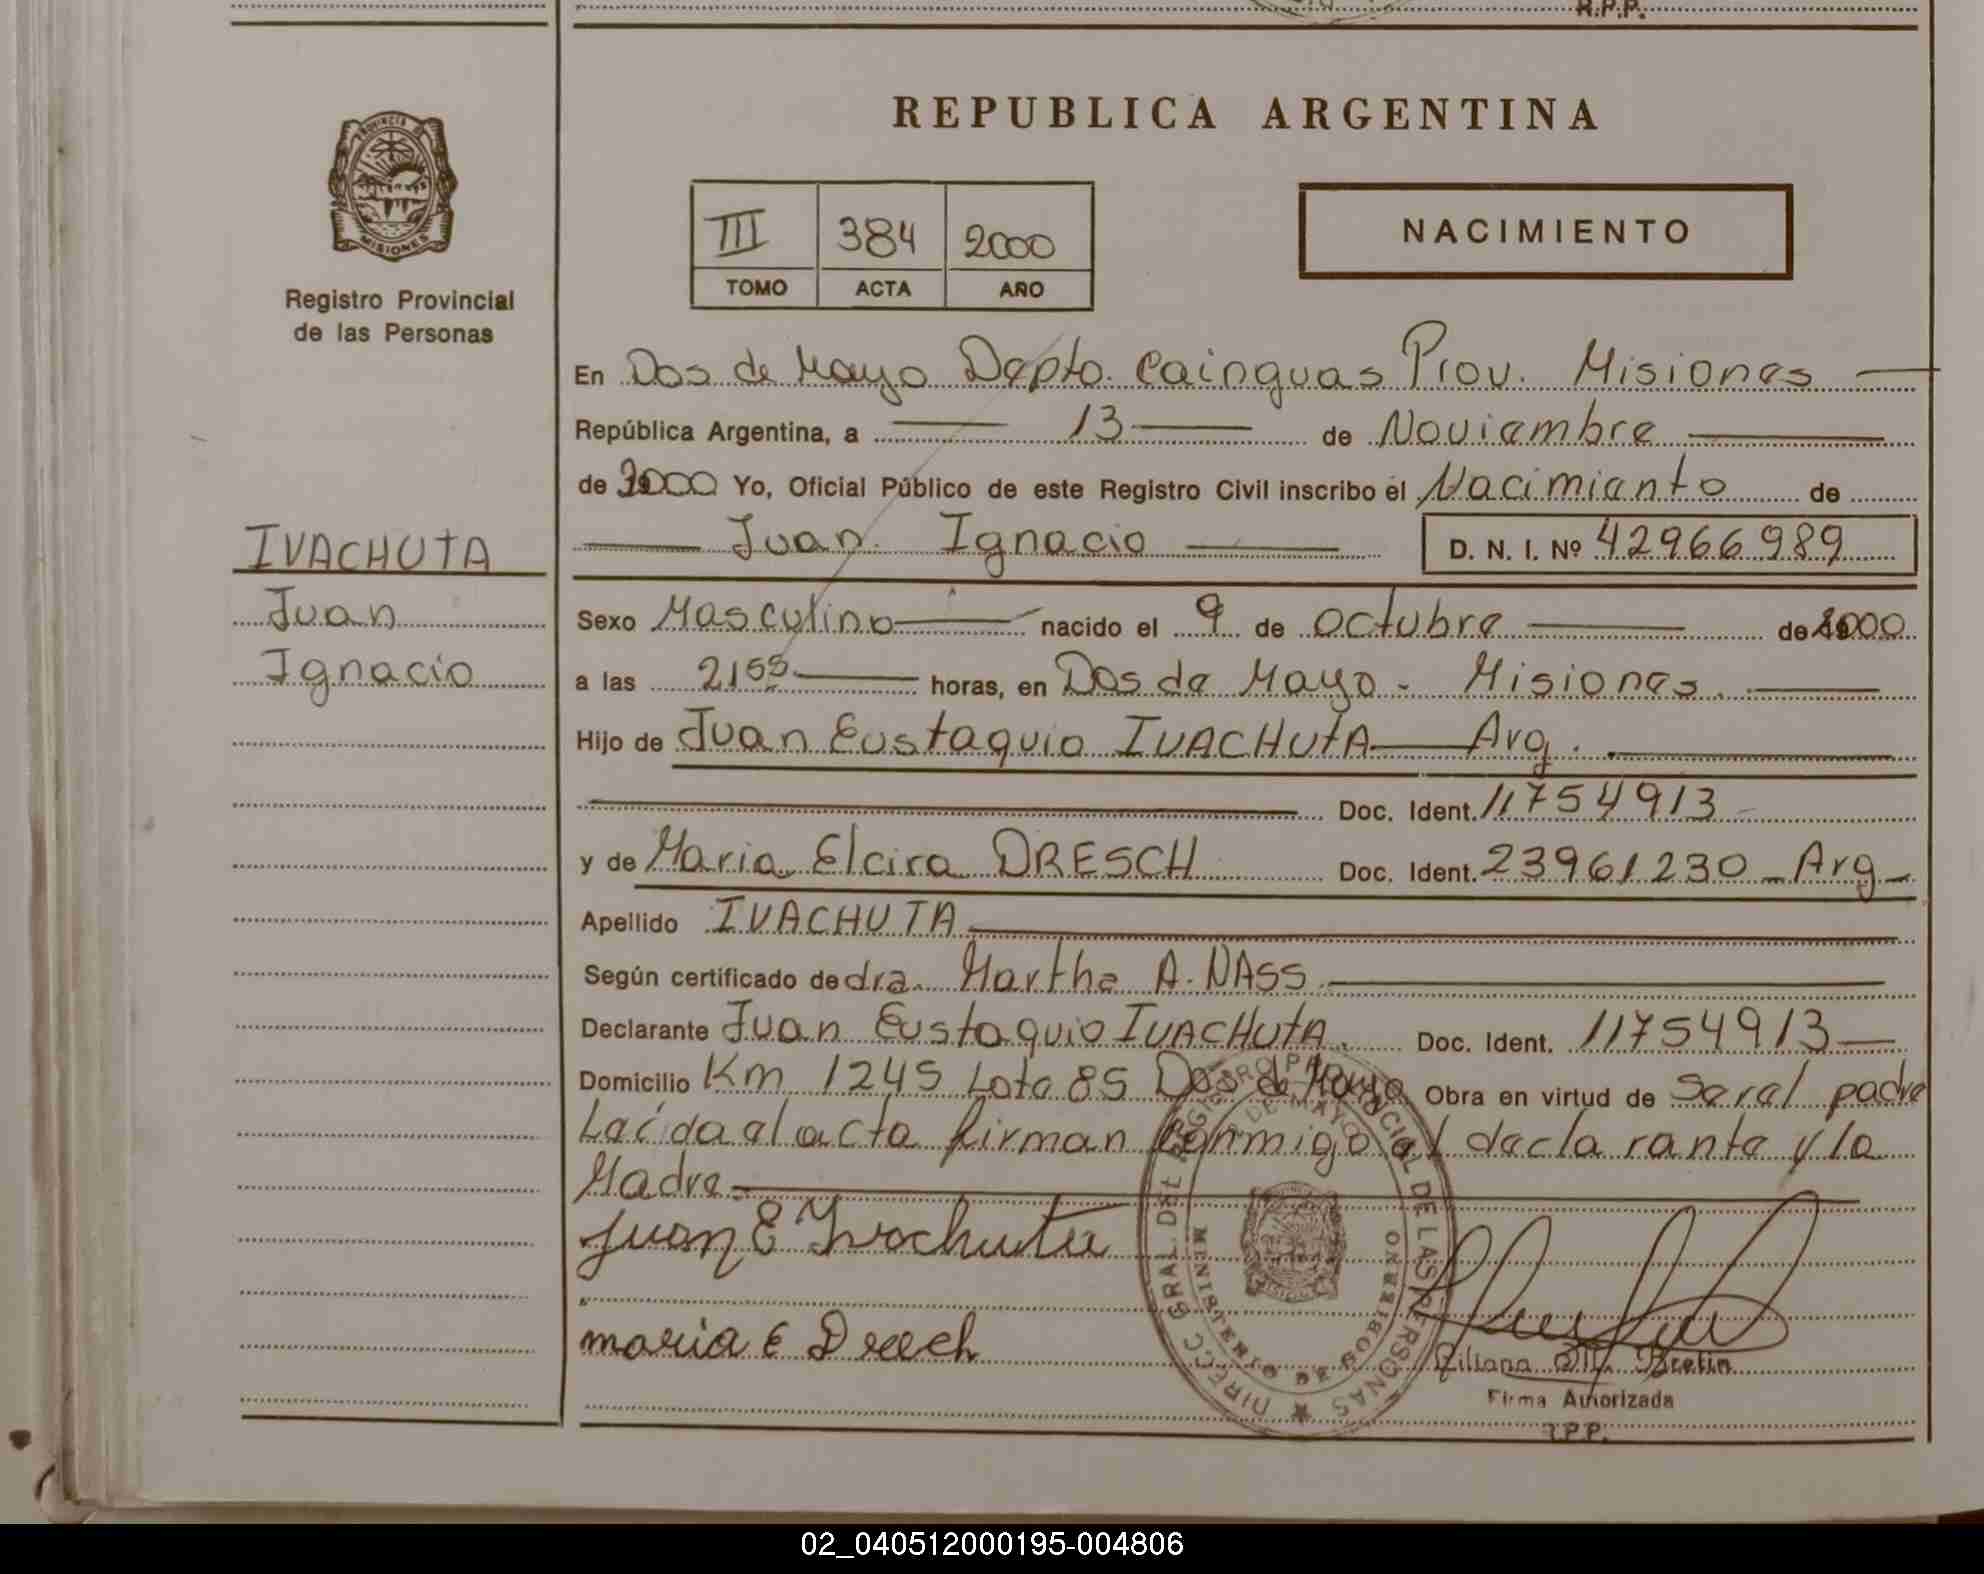 R.P.P.
REPUBLICA ARGENTINA
PROVINCIA DE
MISIONES
Registro Provincial
de las Personas
III 384 2000
TOMO ACTA AÑO
NACIMIENTO
En Dos de Mayo Depto. Cainguas Prov. Misiones
República Argentina, a 13 de Noviembre
de 2000 Yo, Oficial Público de este Registro Civil inscribo el Nacimiento de
Juan Ignacio D. N. I. Nº 42966989
IVACHUTA
Juan
Ignacio
Sexo Masculino nacido el 9 de octubre de 2000
a las 2155 horas, en Dos de Mayo - Misiones.
Hijo de Juan Eustaquio IVACHUTA Arg.
Doc. Ident. 11754913
y de Maria Elcira DRESCH Doc. Ident. 23961230 - Arg -
Apellido IVACHUTA
Según certificado de dra. Martha A. NASS
Declarante Juan Eustaquio IVACHUTA. Doc. Ident. 11754913
Domicilio Km 1245 Lote 85 Dos de Mayo Obra en virtud de ser el padre
Leída el acta firman conmigo el declarante y la
Madre.
Juan E Ivachuta
maria E Dresch
DIRECC GRAL. DEL REGISTRO PROVINCIAL DE LAS PERSONAS
DOS DE MAYO
MINISTERIO DE GOBIERNO
Firma Autorizada
R.P.P.
02_040512000195-004806